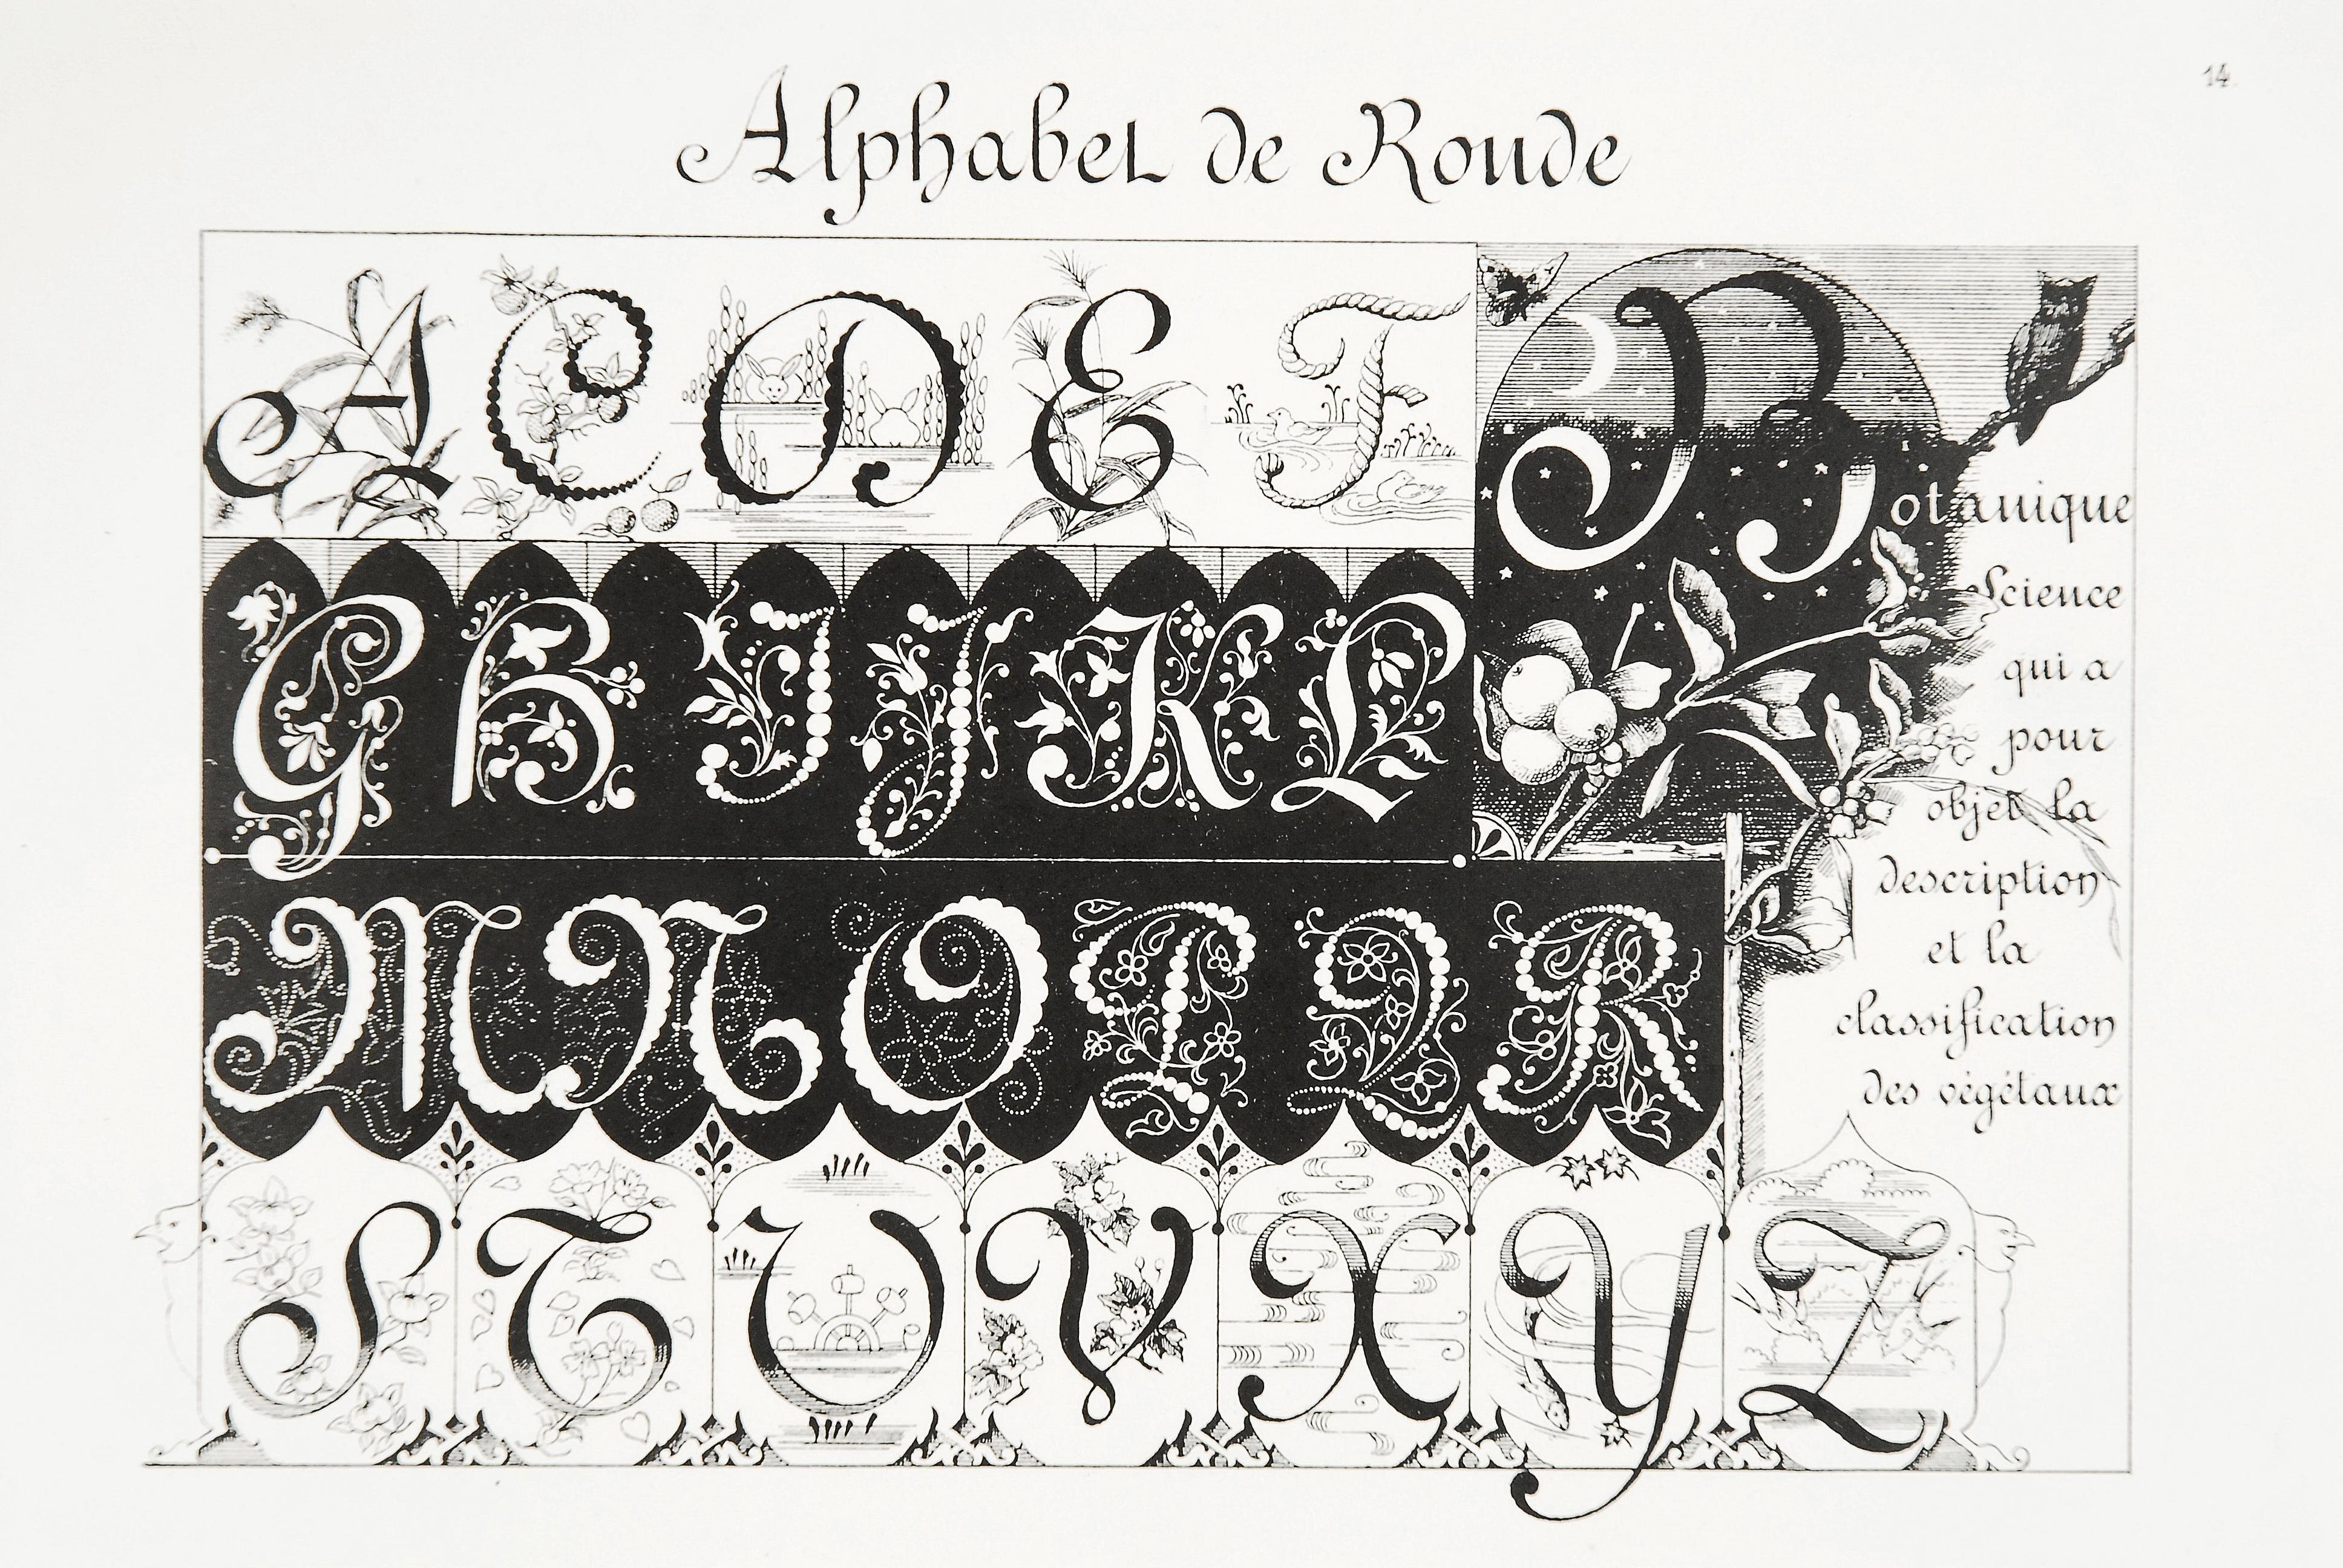 14.
Alphabet de Ronde
A C D E F
Botanique
Science
qui a
pour
objet la
description
et la
classification
des végétaux
G H I J K L
M N O P Q R
S T U V X Y Z